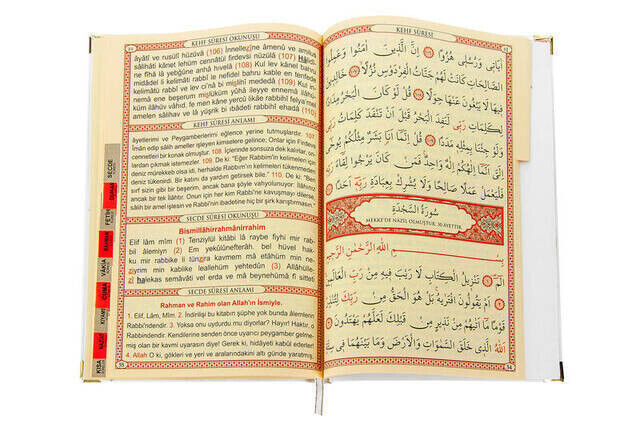 KEHF SÛRESİ OKUNUŞU
âyâtî ve rusulî hüzüvâ (106) İnnellezîne âmenû ve amilus
sâlihâti kânet lehüm cennâtül firdevsi nüzülâ (107) Hâlidî-
ne fîhâ lâ yebğûne anhâ hıvelâ (108) Kul lev kânel bahru
midâdel li kelimâti rabbî le nefidel bahru kable en tenfede
kelimâtü rabbî ve lev ci'nâ bi mislihî mededâ (109) Kul in-
nemâ ene beşerum mislüküm yûhâ ileyye ennemâ ilâhü-
küm ilâhüv vâhıd, fe men kâne yercû likâe rabbihî felya'mel
amelen sâlihav ve lâ yüşrik bi ıbâdeti rabbihî ehadâ (110)
KEHF SÛRESİ ANLAMI
âyetlerimi ve Peygamberlerimi eğlence yerine tutmuşlardır. 107.
İman edip salih ameller işleyen kimselere gelince; Onlar için Firdevs
cennetleri bir konak olmuştur. 108. İçlerinde sonsuza dek kalırlar, on-
lardan çıkmak istemezler. 109. De ki: "Eğer Rabbimin kelimeleri için
deniz mürekkeb olsa idi, herhalde Rabbimin kelimeleri tükenmeden
deniz tükenirdi. Bir katını da yardım getirsek bile." 110. De ki: "Ben
sırf sizin gibi bir beşerim, ancak bana şöyle vahyolunuyor: İlâhınız
ancak bir tek ilâhtır. Onun için her kim Rabbi'ne kavuşmayı dilerse
salih bir amel işlesin ve Rabbinin ibadetine hiç bir şirk karıştırmasın.
SECDE SÛRESİ OKUNUŞU
Bismillâhirrahmânirrahîm
Elif lâm mîm (1) Tenzîlül kitâbi lâ raybe fîhi mir rab-
bil âlemîyn (2) Em yekûlûnefterâh, bel hüvel hak-
ku mir rabbike li tünzira kavmem mâ etâhüm min ne-
zîyrim min kablike leallehüm yehtedûn (3) Allâhülle-
zî halekas semâvâti vel erda ve mâ beynehümâ fî sitteti
SECDE SÛRESİ ANLAMI
Rahman ve Rahim olan Allah'ın İsmiyle.
1. Elif, Lâm, Mîm. 2. İndirilişi bu kitabın şüphe yok bunda âlemlerin
Rabbi'ndendir. 3. Yoksa onu uydurdu mu diyorlar? Hayır! Haktır, o
Rabbindendir. Kendilerine senden önce uyarıcı peygamber gelme-
miş olan bir kavmi uyarasın diye! Gerek ki, hidâyeti kabûl ederler!
4. Allah O ki, gökleri ve yeri ve aralarındakini altı günde yaratmış,
SECDE
FETİH
RAHMAN
VÂKIA
CUMA
KIYAME
KISA
KEHF SÛRESİ
اٰيَاتٖي وَرُسُلٖي هُزُوًا ﴿١٠٦﴾ اِنَّ الَّذٖينَ اٰمَنُوا وَعَمِلُوا
الصَّالِحَاتِ كَانَتْ لَهُمْ جَنَّاتُ الْفِرْدَوْسِ نُزُلًا ﴿١٠٧﴾ خَالِدٖينَ
فٖيهَا لَا يَبْغُونَ عَنْهَا حِوَلًا ﴿١٠٨﴾ قُلْ لَوْ كَانَ الْبَحْرُ مِدَادًا
لِكَلِمَاتِ رَبّٖي لَنَفِدَ الْبَحْرُ قَبْلَ اَنْ تَنْفَدَ كَلِمَاتُ رَبّٖي
وَلَوْ جِئْنَا بِمِثْلِهٖ مَدَدًا ﴿١٠٩﴾ قُلْ اِنَّمَا اَنَا بَشَرٌ مِثْلُكُمْ يُوحٰى
اِلَيَّ اَنَّمَا اِلٰهُكُمْ اِلٰهٌ وَاحِدٌ فَمَنْ كَانَ يَرْجُوا لِقَاءَ رَبِّهٖ
فَلْيَعْمَلْ عَمَلًا صَالِحًا وَلَا يُشْرِكْ بِعِبَادَةِ رَبِّهٖ اَحَدًا ﴿١١٠﴾
سُورَةُ السَّجْدَةِ
MEKKE'DE NAZİL OLMUŞTUR. 30 AYETTİR.
بِسْمِ اللّٰهِ الرَّحْمٰنِ الرَّحٖيمِ
الٓمٓ ﴿١﴾ تَنْزٖيلُ الْكِتَابِ لَا رَيْبَ فٖيهِ مِنْ رَبِّ الْعَالَمٖينَ ﴿٢﴾
اَمْ يَقُولُونَ افْتَرٰيهُ بَلْ هُوَ الْحَقُّ مِنْ رَبِّكَ لِتُنْذِرَ
قَوْمًا مَا اَتٰيهُمْ مِنْ نَذٖيرٍ مِنْ قَبْلِكَ لَعَلَّهُمْ يَهْتَدُونَ ﴿٣﴾
اَللّٰهُ الَّذٖي خَلَقَ السَّمٰوَاتِ وَالْاَرْضَ وَمَا بَيْنَهُمَا فٖي